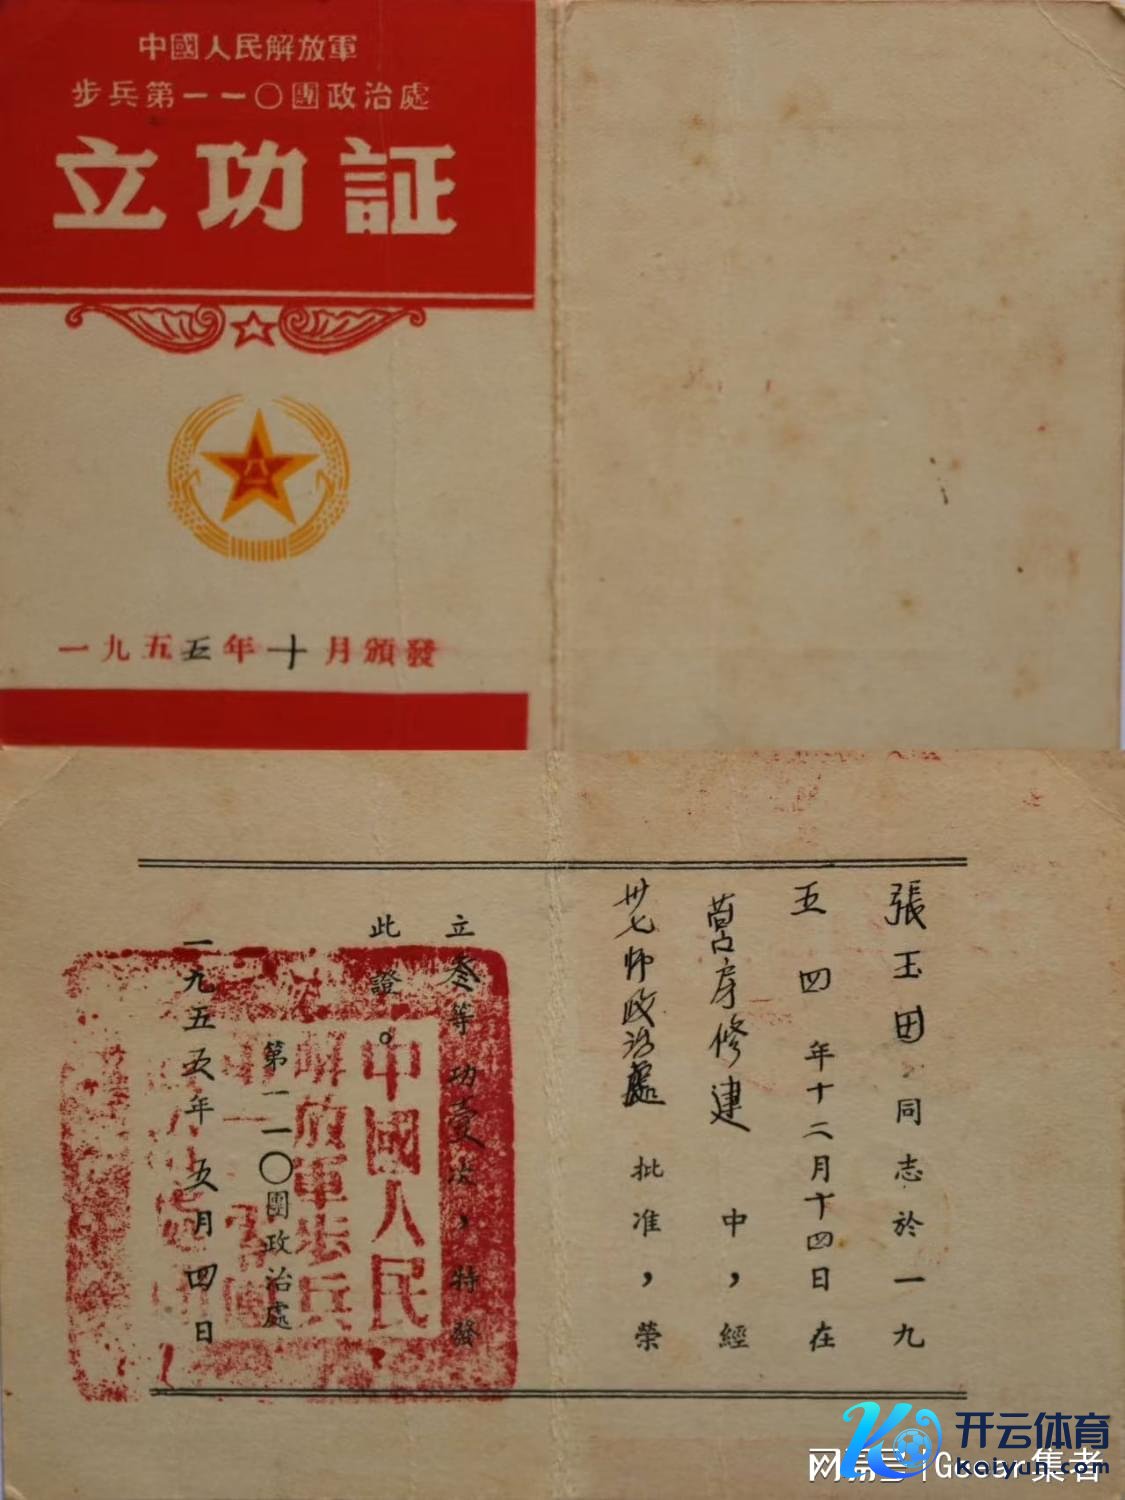 中國人民解放軍
步兵第一一〇團政治處
立功証
八一
一九五五年十月頒發
張玉田同志於一九
五四年十二月十四日在
营房修建中，經
卅七师政治處批准，榮
立叁等功壹次，特發
此證。
第一一〇團政治處
一九五五年五月四日
中國人民
解放軍步兵
开云体育
kaiyun.com
网易号
集者